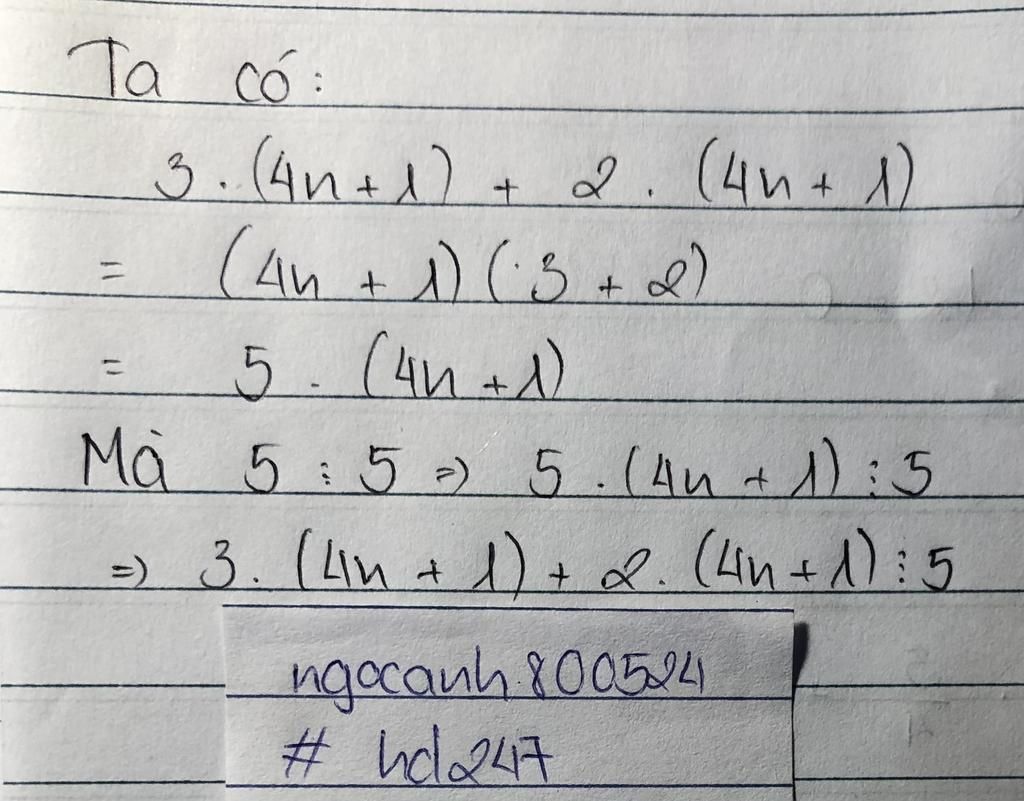 Ta có:
3 . (4n + 1) + 2 . (4n + 1)
= (4n + 1) (3 + 2)
= 5 . (4n + 1)
Mà 5 ⋮ 5 => 5 . (4n + 1) ⋮ 5
=> 3 . (4n + 1) + 2 . (4n + 1) ⋮ 5
ngocanh800524
# hd247